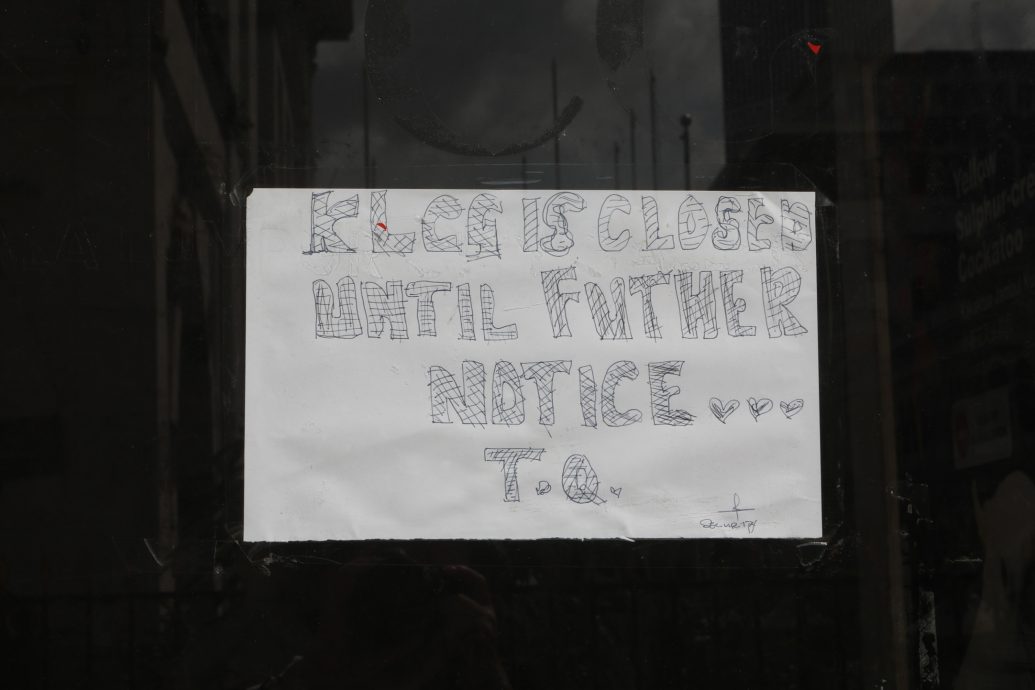 KLCG IS CLOSED
UNTIL FUTHER
NOTICE
T.Q.
Security
Yellow
Sulphur-
Cockatoo